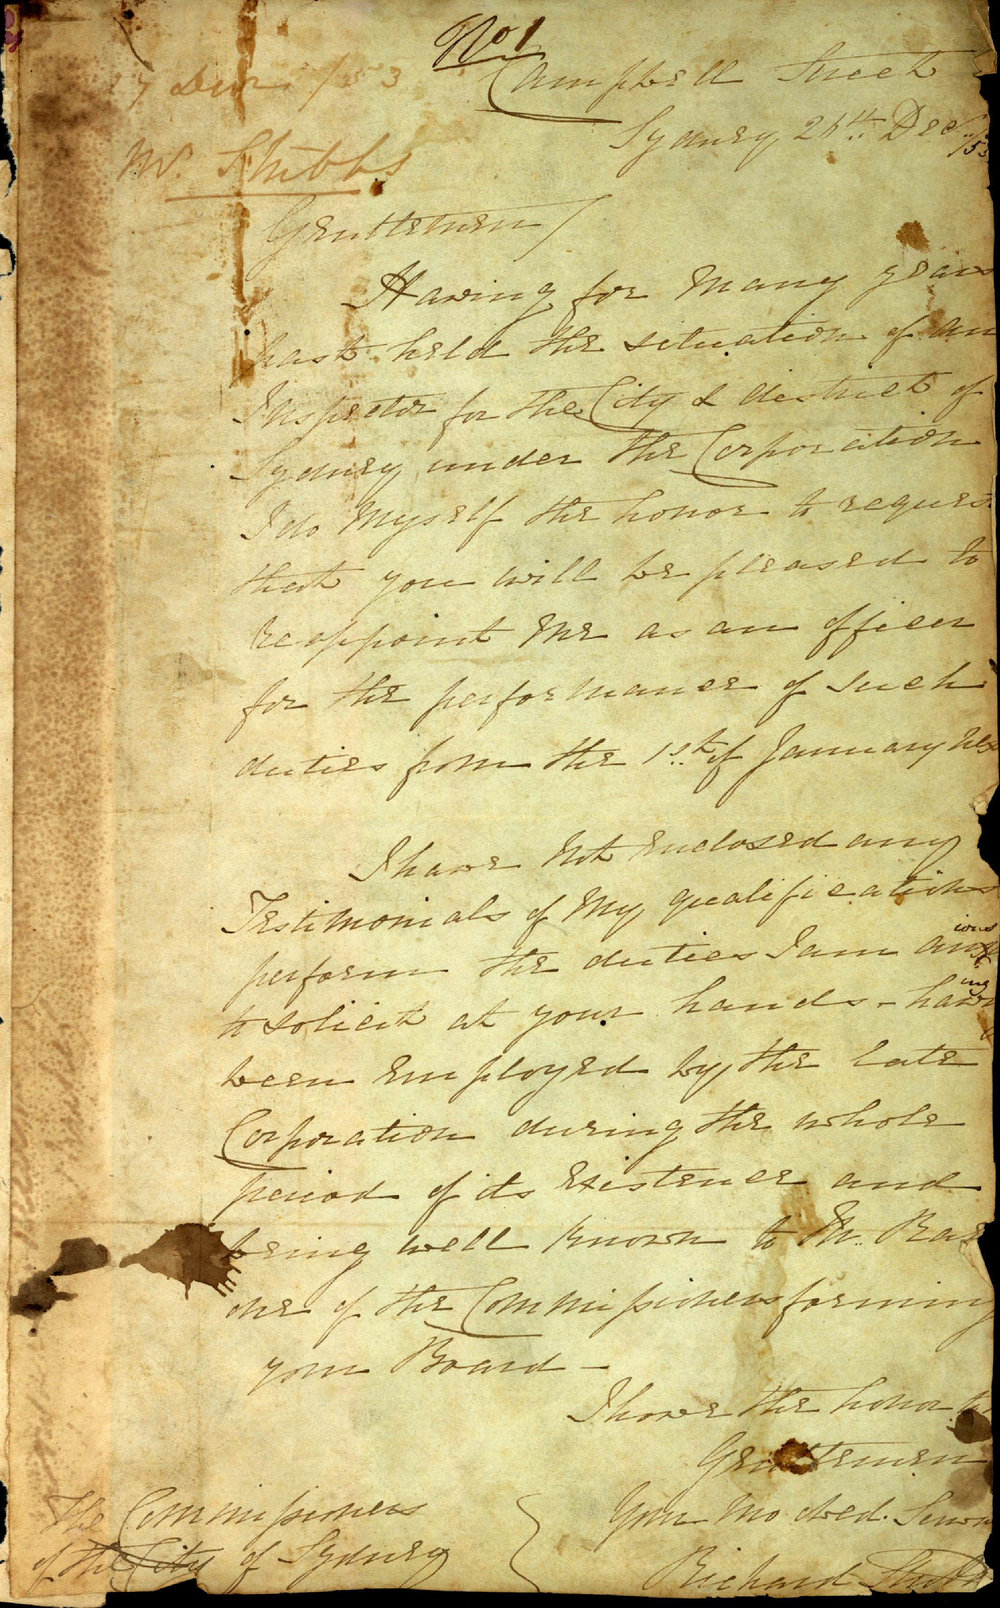 No 1
27 Decr /53
Campbell Street
Sydney 26th Dec
/53
Mr. Stubbs
Gentlemen/
Having for Many years
past held the situation of an
Inspector for the City & district of
Sydney under the Corporation
I do Myself the honor to reques
that you will be pleased to
reappoint Me as an officer
for the performance of such
duties from the 1st of January Nex
I have Not Enclosed any
Testimonials of My qualifications
perform the duties I am anxious
to solicit at your hands - having
been Employed by the late
Corporation during the whole
period of its Existence and
being well Known to Mr.
one of the Commissioners forming
your Board -
I have the honor to
Gentlemen
Your Mo obed. Serva
Richard Stubbs
The Commissioners
of the City of Sydney